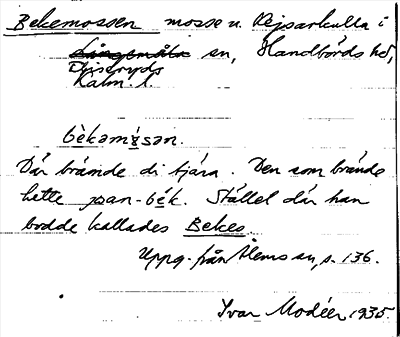 Bekemossen mosse u. Kejsarkulla i
Långemåla sn, Handbörds hd,
Kalm l.
bèkəmɔ̀sən.
Där brände di tjära. Den som brände
hette jsan-bék. Stället där han
bodde kallades Bekes.
Uppg. från Ålems sn, s. 136.
Ivar Modéer 1935.